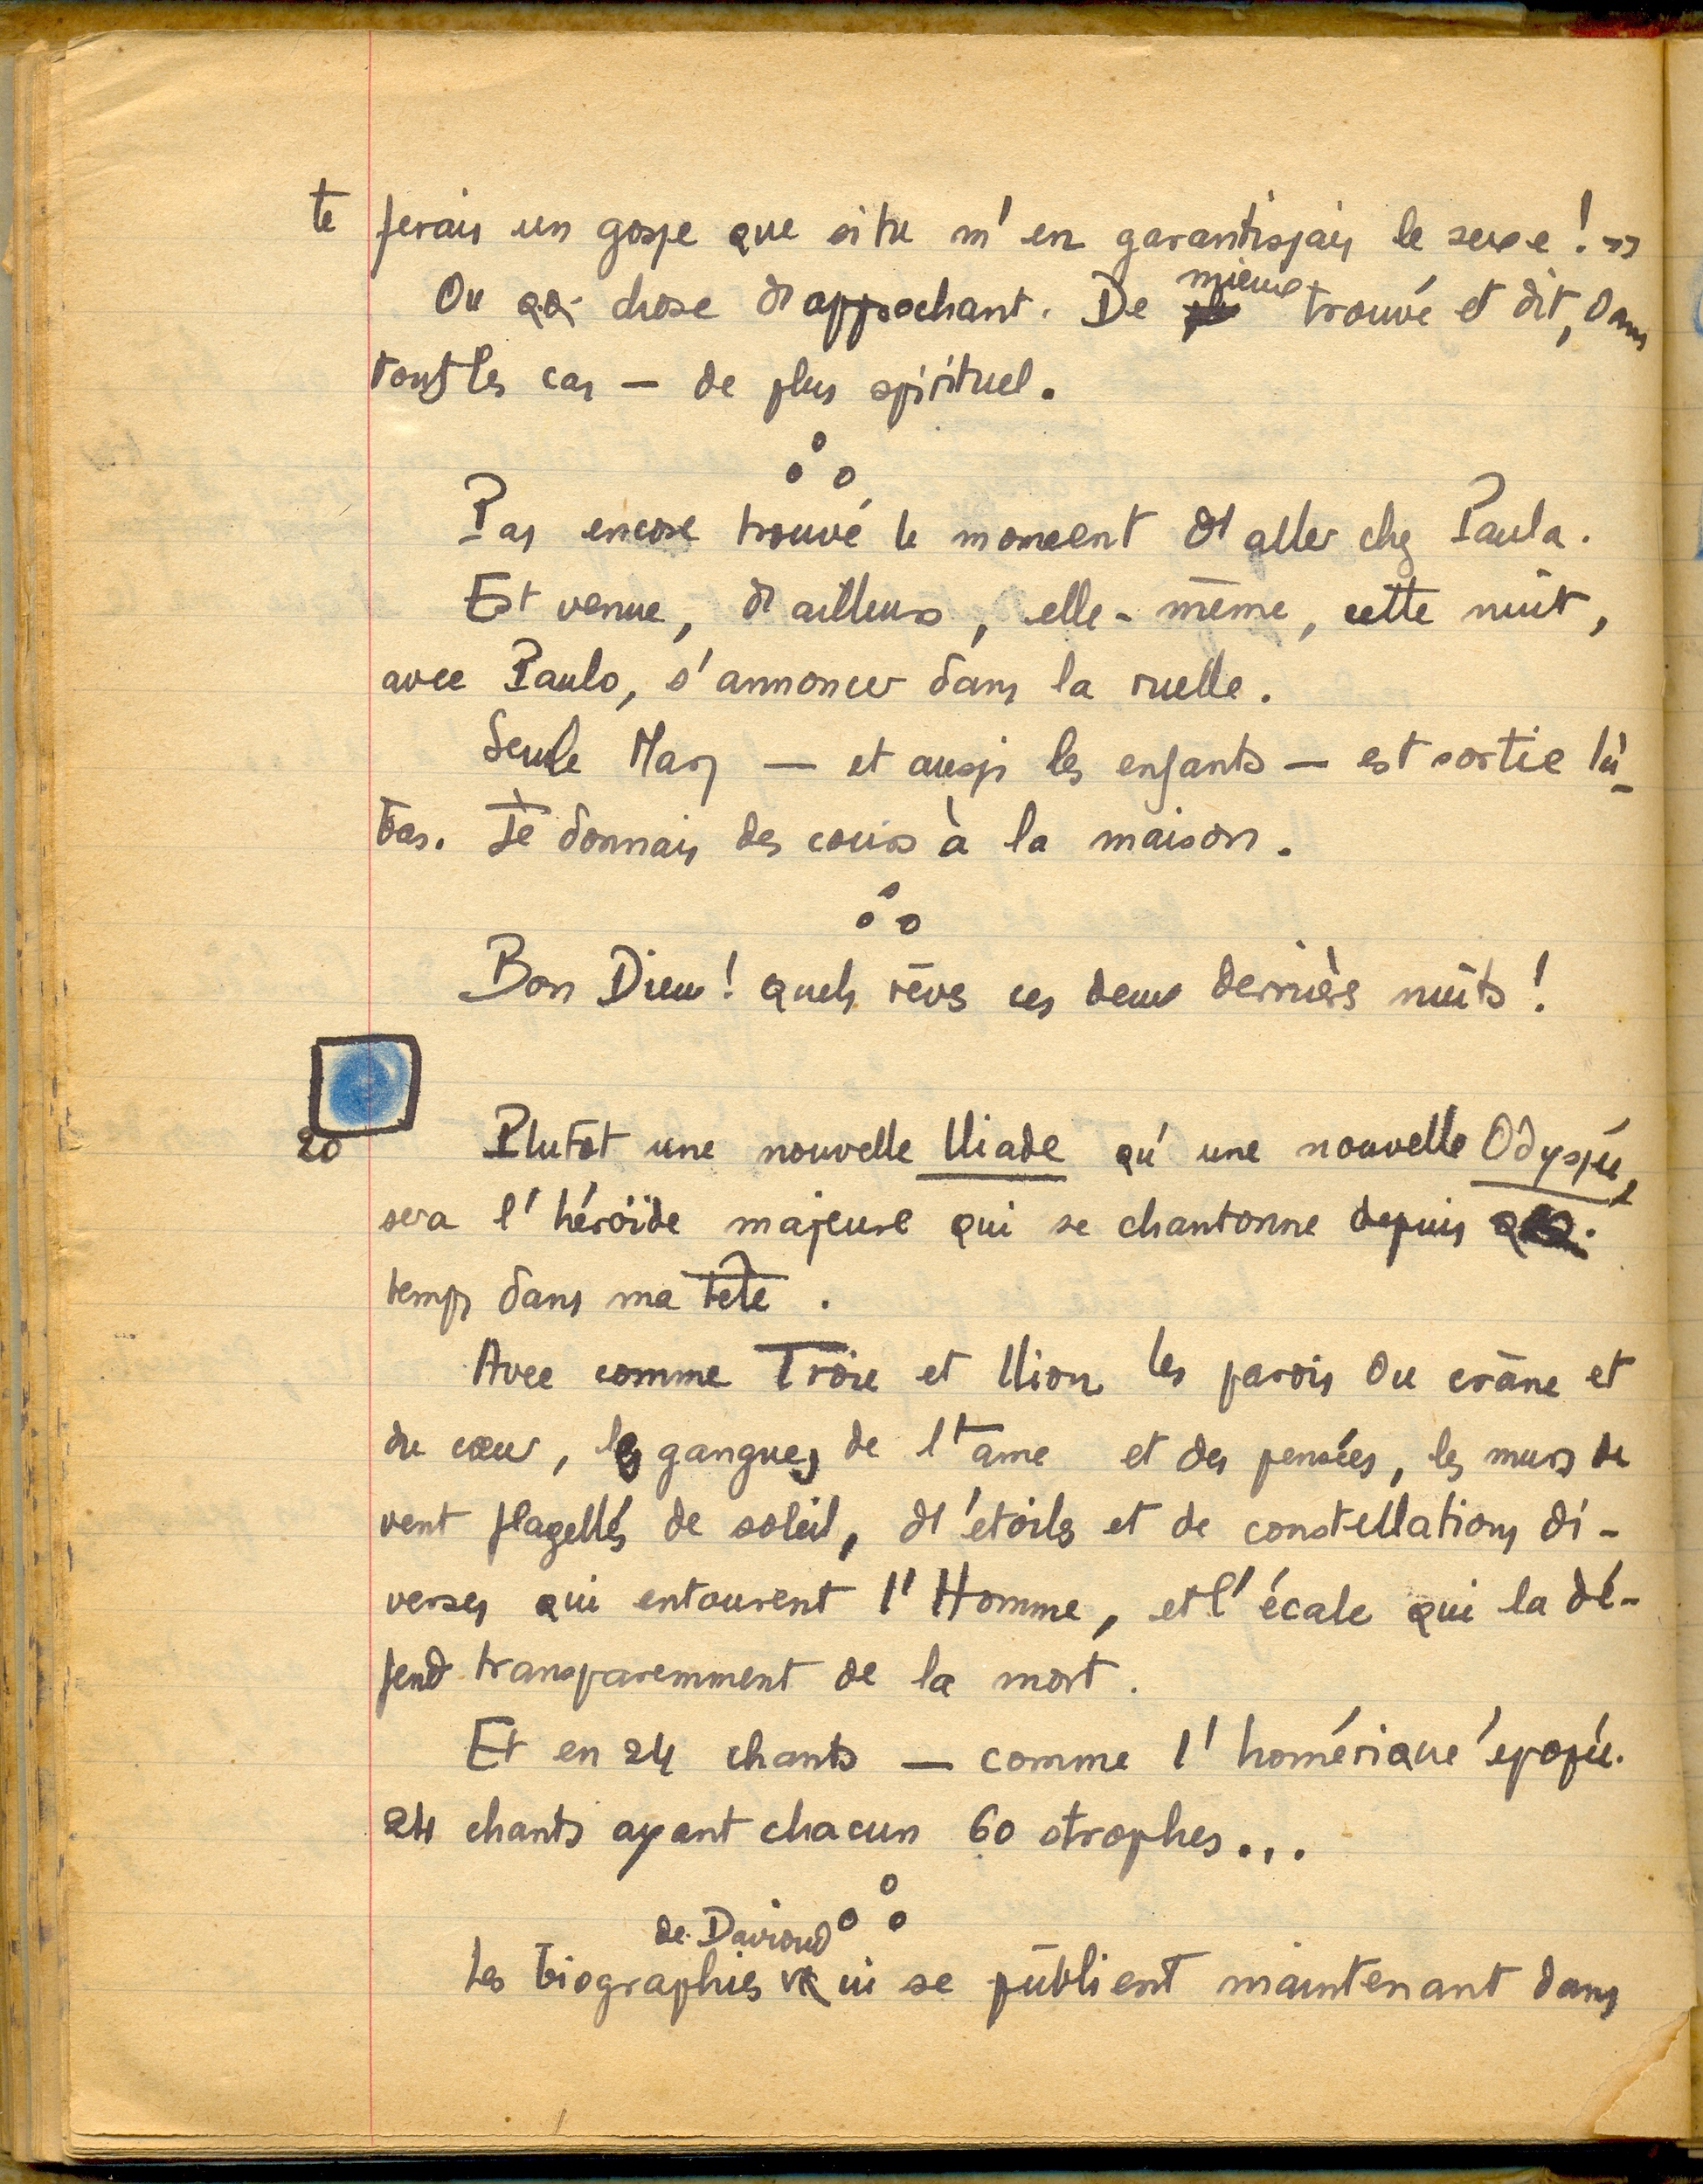 te ferais un gosse que si tu m'en garantissais le sexe ! »
Ou qq. chose d'approchant. De mieux trouvé et dit, dans
tous les cas — de plus spirituel.
Pas encore trouvé le moment d'aller chez Paula.
Est venue, d'ailleurs, elle-même, cette nuit,
avec Paulo, s'annoncer dans la ruelle.
Seule Mary — et aussi les enfants — est sortie là-
bas. Je donnais des cours à la maison.
Bon Dieu ! quels rêves ces deux dernières nuits !
20
Plutôt une nouvelle Iliade qu'une nouvelle Odyssée,
sera l'héroïde majeure qui se chantonne depuis qq.
temps dans ma tête.
Avec comme Troie et Ilion les parois du crâne et
du cœur, les gangues de l'âme et des pensées, les murs de
vent flagellés de soleil, d'étoiles et de constellations di-
verses qui entourent l'Homme, et l'écale qui la dé-
fend transparemment de la mort.
Et en 24 chants — comme l'homérique épopée.
24 chants ayant chacun 60 strophes...
de Davioud
Les biographies qui se publient maintenant dans